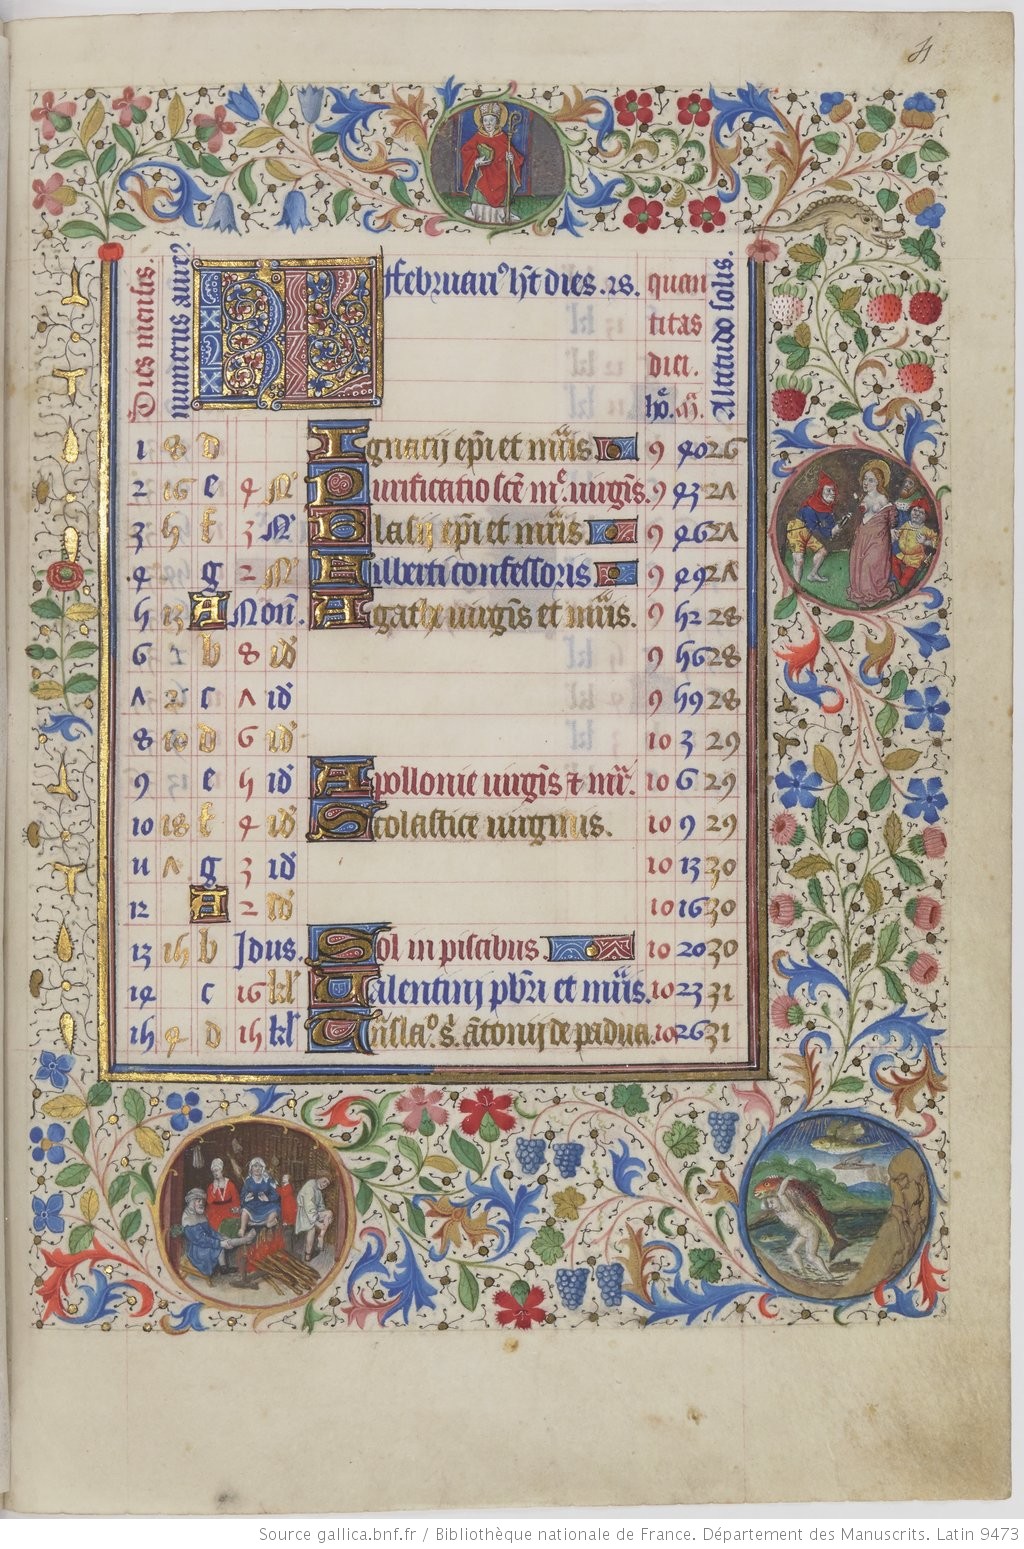 4
Dies mensis.
numerus aure9
KL
februari9 ht dies .28.
quan
titas
diei.
ho. m.
Altitudo solis.
1 8 d Ignacij epi et mris 9 4026
2 16 e 4 N Purificatio sce me. virginis. 9 4327
3 5 f 3 N Blasij epi et mris. 9 4627
4 g 2 N Gilberti confessoris 9 4927
5 13 A Non. Agathe virginis et mris. 9 5228
6 2 b 8 id 9 5628
7 c 7 id 9 5928
8 10 d 6 id 10 3 29
9 e 5 id Apollonie virginis & mr. 10 6 29
10 18 f 4 id Scolastice virginis. 10 9 29
11 7 g 3 id 10 1330
12 A 2 id 10 1630
13 15 b Idus. Sol in piscibus. 10 2030
14 c 16 kl Valentinj pbri et mris. 10 2331
15 4 d 15 kl Tnsla9. s. antonij de padua. 10 2631
Source gallica.bnf.fr / Bibliothèque nationale de France. Département des Manuscrits. Latin 9473